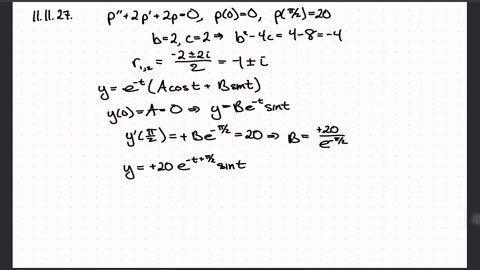 11.11.27. p"+2p'+2p=0, p(0)=0, p(π/2)=20
b=2, c=2 ⇒ b²-4c=4-8=-4
r₁,₂ = (-2±2i)/2 = -1±i
y=e^(-t)(Acost+Bsint)
y(0)=A=0 ⇒ y=Be^(-t)sint
y'(π/2)=+Be^(-π/2)=20 ⇒ B=+20/e^(-π/2)
y=+20e^(-t+π/2)sint